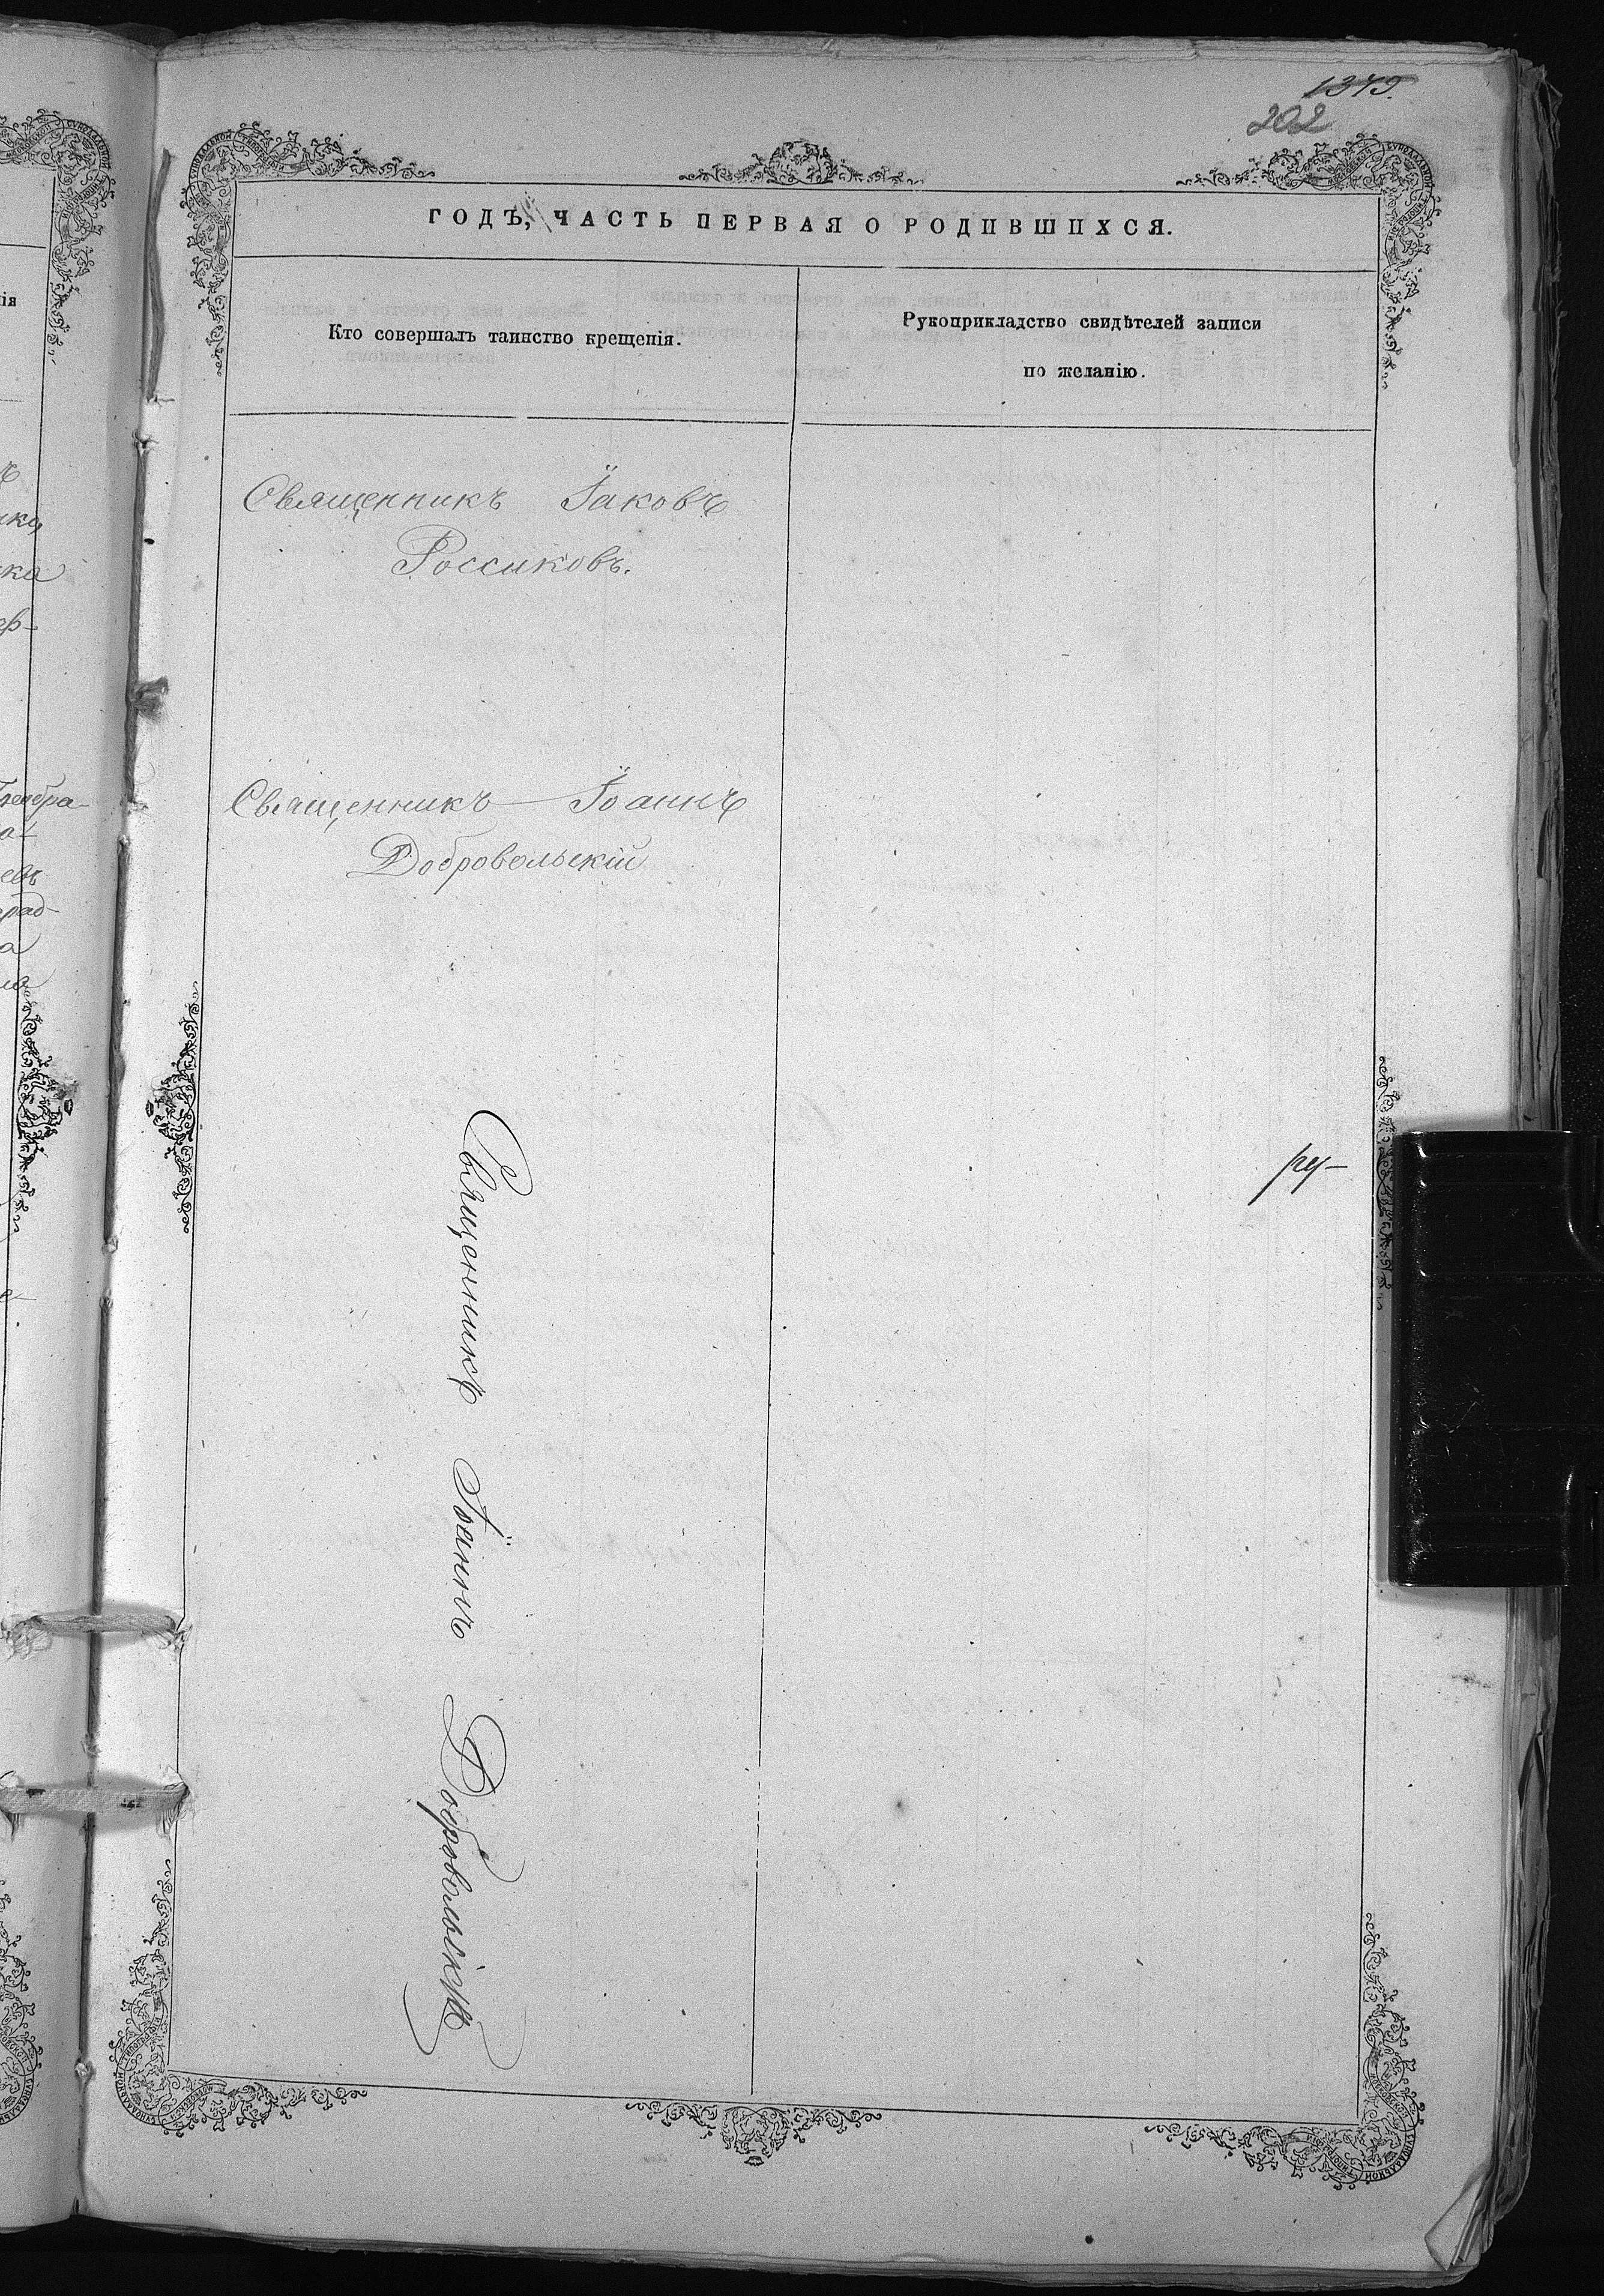 1379.
202
ГОДЪ, ЧАСТЬ ПЕРВАЯ О РОДИВШИХСЯ.
Кто совершалъ таинство крещенія.
Рукоприкладство свидѣтелей записи
по желанію.
Священникъ Іаковъ
Россиковъ.
Священникъ Іоаннъ
Добровольскій
ру-
Священникъ Іоаннъ Добровольскій